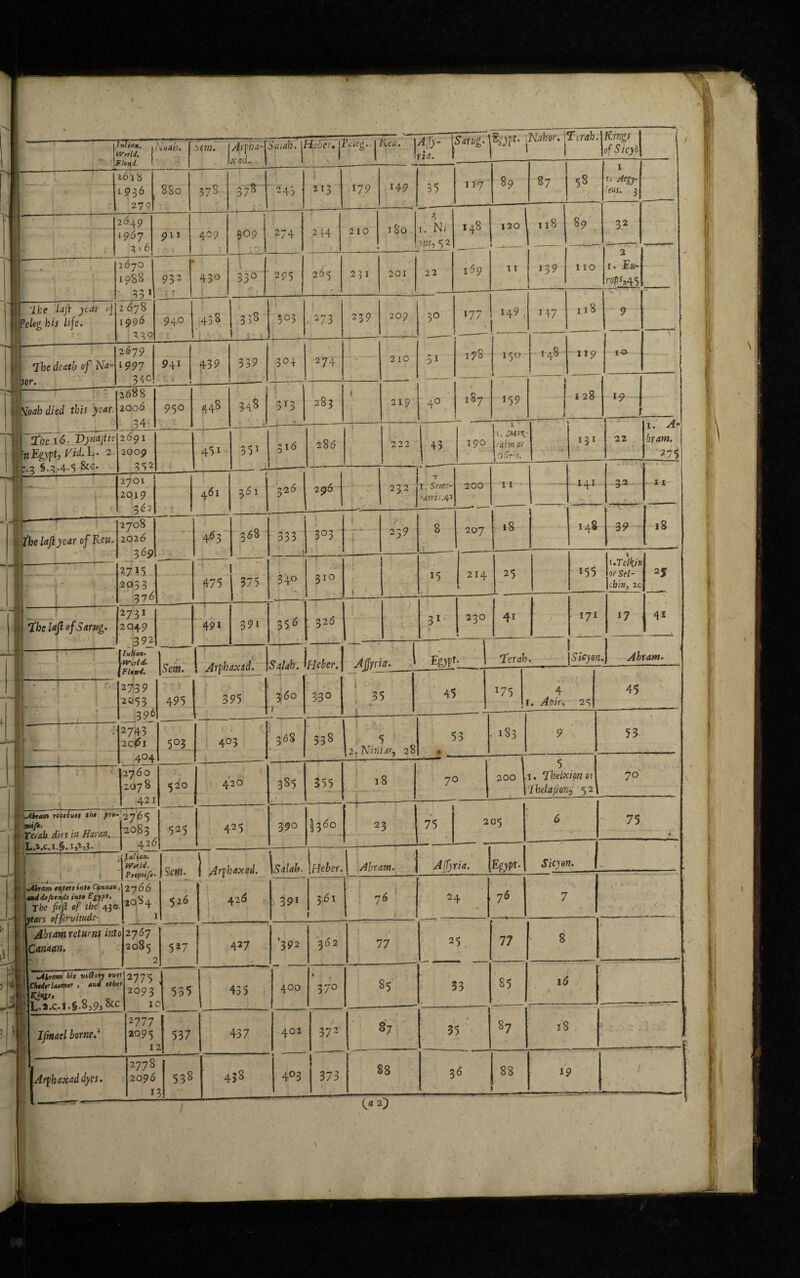 Iulian. World. Floud. | Noah. | Sem. | Arpha-xad. | Salah. | Heber. | Peleg. | Reu. | Assy-ria. | Sarug. | Egypt. | Nahor. | Terah. | Kings of Sicyo
2618 1936 279 | 880 | 378 | 378 | 243 | 213 | 179 | 149 | 35 | 117 | 89 | 87 | 58 | 1 1. Aegy-leus. 3
2649 1967 316 | 911 | 409 | 309 | 274 | 244 | 210 | 180 | 1. Ni nus, 52 | 148 | 120 | 118 | 89 | 32
2670 1988 331 | 932 | 430 | 330 | 295 | 265 | 231 | 201 | 22 | 169 | 11 | 139 | 110 | 2 1. Eu-rops, 45
The last year of Peleg his life. | 2678 1996 339 | 940 | 438 | 338 | 303 | 273 | 239 | 209 | 30 | 177 | 149 | 147 | 118 | 9
The death of Na-hor. | 2679 1997 340 | 941 | 439 | 339 | 304 | 274 | 210 | 31 | 178 | 150 | 148 | 119 | 10
Noah died this year. | 2688 2006 | 950 | 448 | 348 | 313 | 283 | 219 | 40 | 187 | 159 | 128 | 19
The 16. Dynastie in Egypt, Vid. L. 2. c.3 §.3.4.5 &c. | 2691 2009 352 | 451 | 351 | 316 | 286 | 222 | 43 | 190 | 131 | 22 | 1. A-bram. 275
2701 2019 362 | 461 | 361 | 326 | 296 | 232 | 1. Semi-ramis. 42 | 200 | 11 | 141 | 32 | 11
The last year of Reu. | 2708 2026 369 | 463 | 368 | 333 | 303 | 239 | 8 | 207 | 18 | 148 | 39 | 18
2715 2033 376 | 475 | 375 | 340 | 310 | 15 | 214 | 25 | 155 | 1. Telkin or Sel-chin, 20 | 25
The last of Sarug. | 2731 2049 392 | 491 | 391 | 356 | 326 | 31 | 230 | 41 | 171 | 17 | 41
Iulian. World. Floud. | Sem. | Arphaxad. | Salah. | Heber. | Assyria. | Egypt. | Terah. | Sicyon. | Abram.
2739 2053 396 | 495 | 395 | 360 | 330 | 35 | 45 | 175 | 4 1. Apis, 25 | 45
2743 2061 404 | 503 | 403 | 368 | 338 | 5 2. Ninias, 28 | 53 | 183 | 9 | 53
2760 2078 421 | 520 | 420 | 385 | 355 | 18 | 70 | 200 | 5 1. Thelxion or Thelasion, 52 | 70
Abram receives the pro-mise. Terah dies in Haran. L.2.c.1.§.1,2,3. | 2765 2083 426 | 525 | 425 | 390 | 360 | 23 | 75 | 205 | 6 | 75
Iulian. World. Promise. | Sem. | Arphaxad. | Salah. | Heber. | Abram. | Assyria. | Egypt. | Sicyon.
Abram enters into Canaan, and descends into Egypt. The first of the 430 years of servitude | 2766 2084 1 | 526 | 426 | 391 | 361 | 76 | 24 | 76 | 7
Abram returns into Canaan. | 2767 2085 2 | 527 | 427 | 392 | 362 | 77 | 25 | 77 | 8
Abram his victory over Chedorlaomer, and other Kings, L.2.c.1.§.8,9, &c | 2775 2093 10 | 535 | 435 | 400 | 370 | 85 | 33 | 85 | 16
Ismael borne. | 2777 2095 12 | 537 | 437 | 402 | 372 | 87 | 35 | 87 | 18
Arphaxad dyes. | 2778 2096 13 | 538 | 438 | 403 | 373 | 88 | 36 | 88 | 19
(a 2)